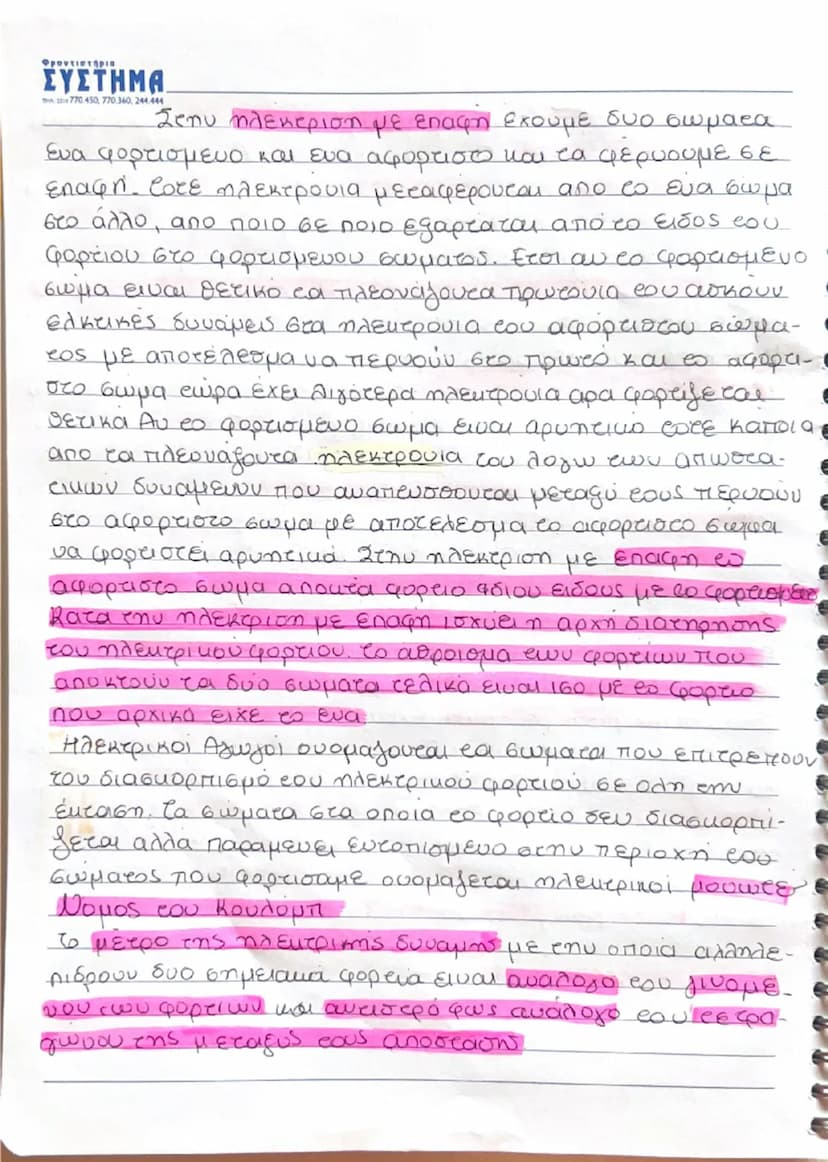 Φροντιστήρια
ΣΥΣΤΗΜΑ
ΤΗΛ: 2310 770.450, 770.360, 244.444
Στην ηλεκτριση με επαφη εχουμε δυο σωματα
ενα φορτισμενο και ενα αφορτιστο και τα φέρνουμε σε
επαφή. Τοτε ηλεκτρονια μεταφέρονται απο το ενα σωμα
στο άλλο, απο ποιο σε ποιο εξαρταται από το ειδος του
φορτιου στο φορτισμενου σωματος. Ετσι αν το φορτισμενο
σωμα ειναι θετικο τα πλεονάζοντα πρωτονια του ασκουν
ελκτικές δυνάμεις στα ηλεκτρονια του αφόρτιστου σώμα-
τος με αποτέλεσμα να περνούν στο πρωτο και το αφορτι-
στο σωμα τώρα έχει λιγότερα ηλεκτρονια αρα φορτιζεται
θετικά Αν το φορτισμενο σωμα ειναι αρνητικο τοτε καποια
απο τα πλεοναζοντα ηλεκτρονια του λογω των απωστι-
τικων δυναμεων που αναπτυσσονται μεταξύ τους περνουν
στο αφορτιστο σωμα με αποτελεσμα το αφορτιστο σωμα
να φορτιστεί αρνητικά. Στην ηλεκτριση με επαφη το
αφορτιστο σωμα αποκτα φορτιο ιδιου ειδους με το φορτισμενο
Κατα την ηλεκτριση με επαφη ισχυει η αρχη διατηρησης
του ηλεκτρικού φορτιου. το αθροισμα των φορτίων που
αποκτούν τα δυό σωματα τελικά ειναι ισο με το φορτιο
που αρχικά ειχε το ενα
Ηλεκτρικοι Αγωγοί ονομαζονται τα σωματα που επιτρεπουν
τον διασκορπισμό του ηλεκτρικού φορτιού σε ολη την
έκταση. Τα σωματα στα οποια το φορτιο δεν διασκορπί-
ζεται αλλά παραμενει εντοπισμενο στην περιοχή του
σώματος που φορτισαμε ονομαζεται ηλεκτρικοί μονωτε
Νομος του Κουλομπ
το μέτρο της ηλεκτρικής δυναμης με την οποια αλληλε-
πιδρουν δυο σημειακα φορτια ειναι αναλογο του γινομε-
νου των φορτιων και αντιστρόφως ανάλογο του τετρα-
γώνου της μεταξυς τους αποστασης